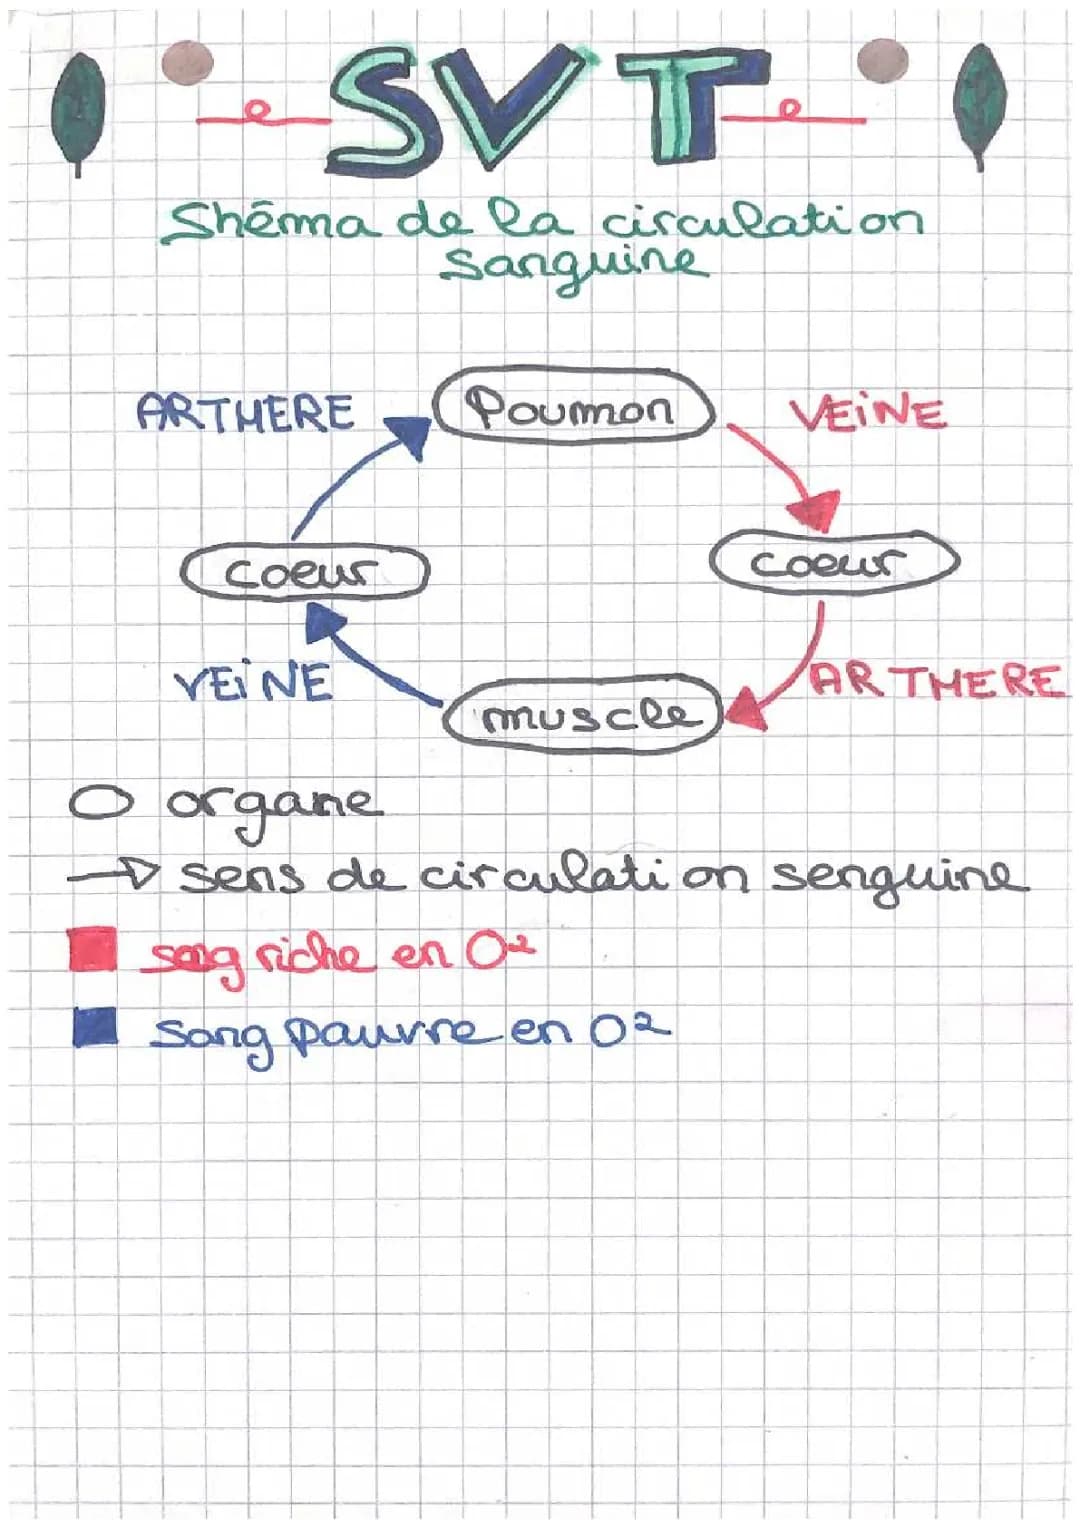 SVT
Shéma de la circulation
sanguine
ARTHERE
Poumon
VEiNE
coeur
coeur
VEiNE
ARTHERE
muscle
organe
sens de circulation senguine
sang riche en O²
Sang pauvre en O²